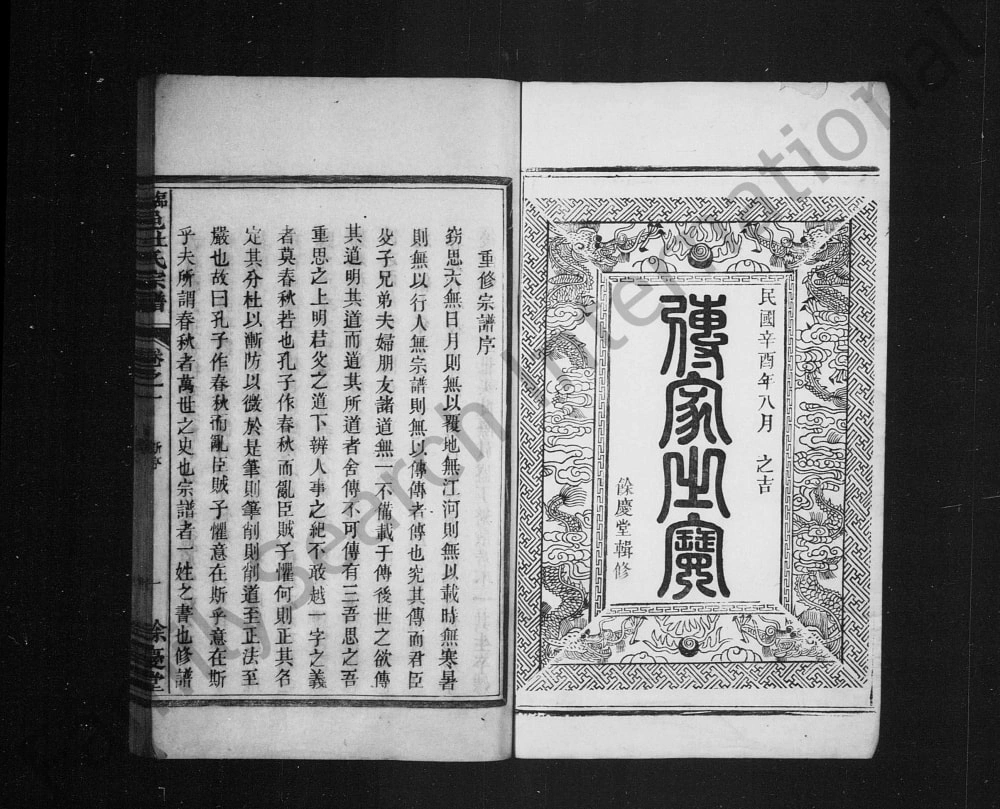 民國辛酉年八月 之吉
傳家之寶
餘慶堂輯修
重修宗譜序
窃思天無日月則無以覆地無江河則無以載時無寒暑
則無以行人無宗譜則無以傳傳者傳也究其傳而君臣
父子兄弟夫婦朋友諸道無一不備載于傳後世之欲傳
其道明其道而道其所道者舍傳不可傳有三吾思之吾
重思之上明君父之道下辨人事之紀不敢越一字之義
者莫春秋若也孔子作春秋而亂臣賊子懼何則正其名
定其分杜以漸防以微於是筆則筆削則削道至正法至
嚴也故曰孔子作春秋而亂臣賊子懼意在斯乎意在斯
乎夫所謂春秋者萬世之史也宗譜者一姓之書也修譜
臨邑杜氏宗譜 卷之一 新序 一 餘慶堂
My
search International